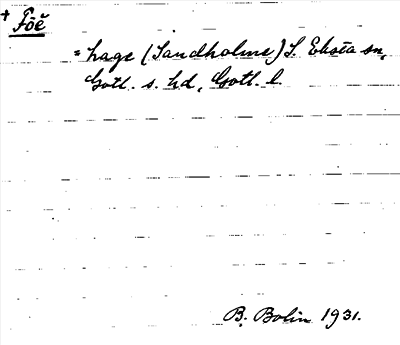 + Föĕ
= hage (Sandholme) L. Eksta sn,
Gotl. s. hd, Gotl. l.
B. Bolin 1931.